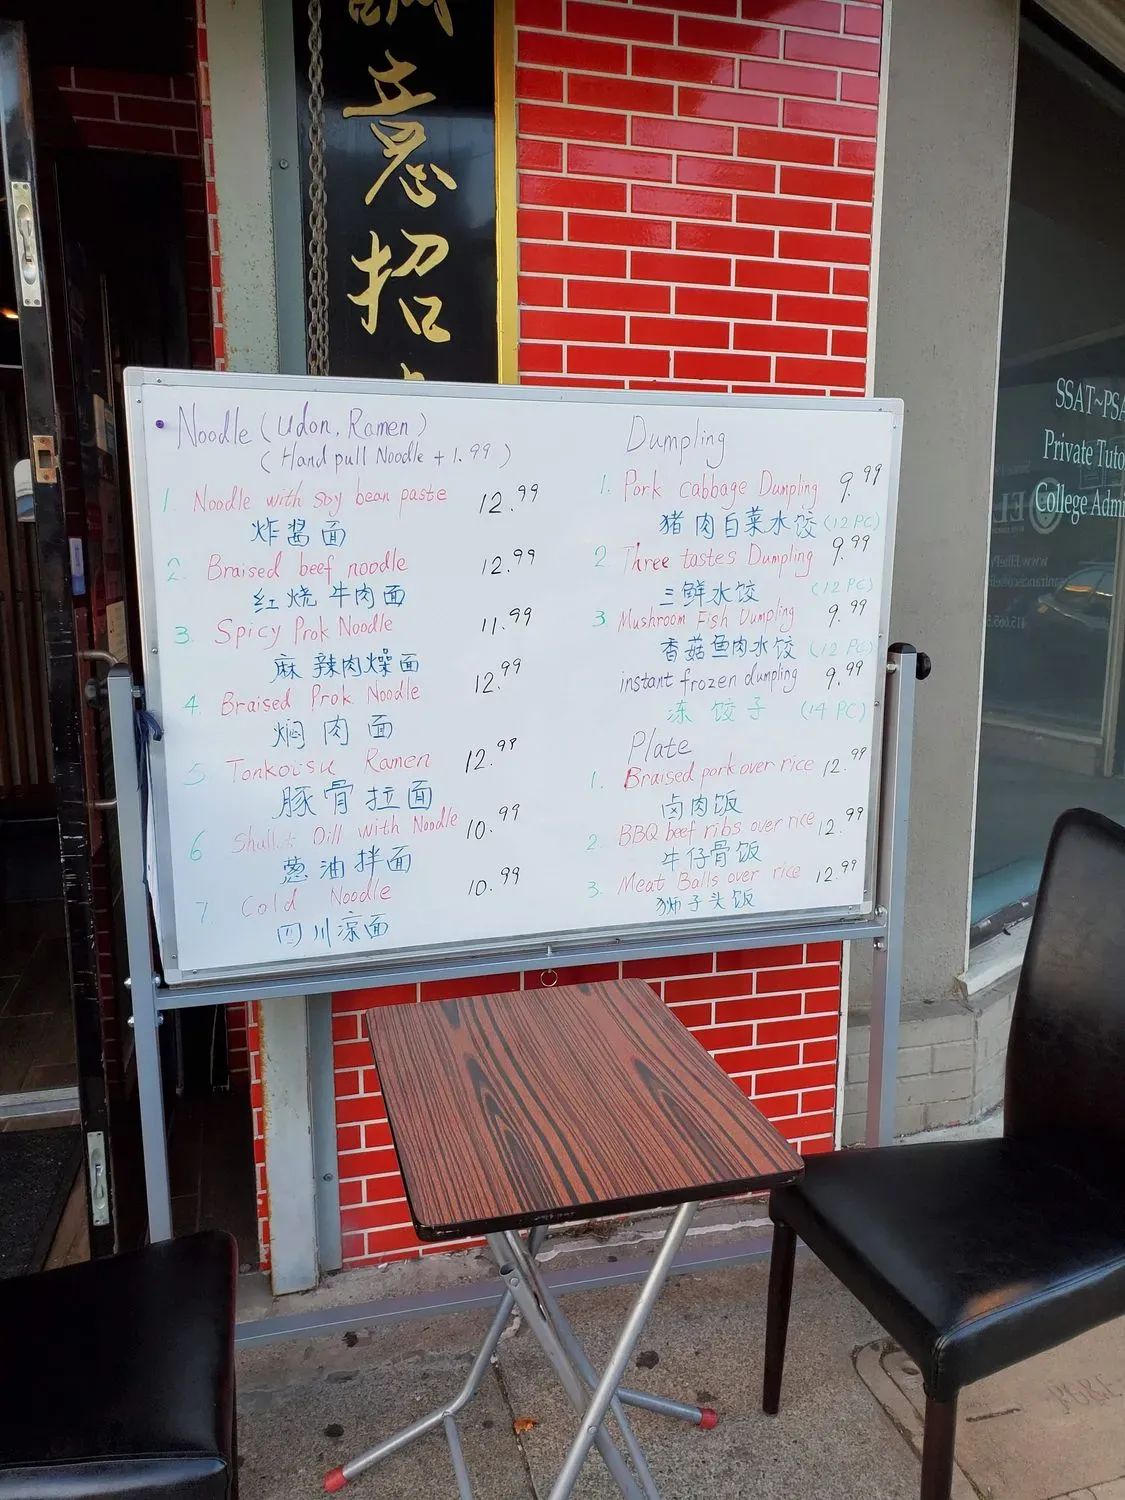 誠
意
招
Noodle (Udon, Ramen)
(Hand pull Noodle + 1.99)
1. Noodle with soy bean paste 12.99
炸酱面
2. Braised beef noodle 12.99
红烧牛肉面
3. Spicy Prok Noodle 11.99
麻辣肉燥面
4. Braised Prok Noodle 12.99
焖肉面
5 Tonkotsu Ramen 12.99
豚骨拉面
6 Oill with Noodle 10.99
葱油拌面
7. Cold Noodle 10.99
四川凉面
Dumpling
1. Pork cabbage Dumpling 9.99
猪肉白菜水饺 (12 PC)
2 Three tastes Dumpling 9.99
三鲜水饺 (12 PC)
3 Mushroom Fish Dumpling 9.99
香菇鱼肉水饺 (12 PC)
instant frozen dumpling 9.99
冻饺子 (14 PC)
Plate
1. Braised pork over rice 12.99
卤肉饭
2. BBQ beef ribs over rice 12.99
牛仔骨饭
3. Meat Balls over rice 12.99
狮子头饭
SSAT~PSA
Private Tuto
College Admi